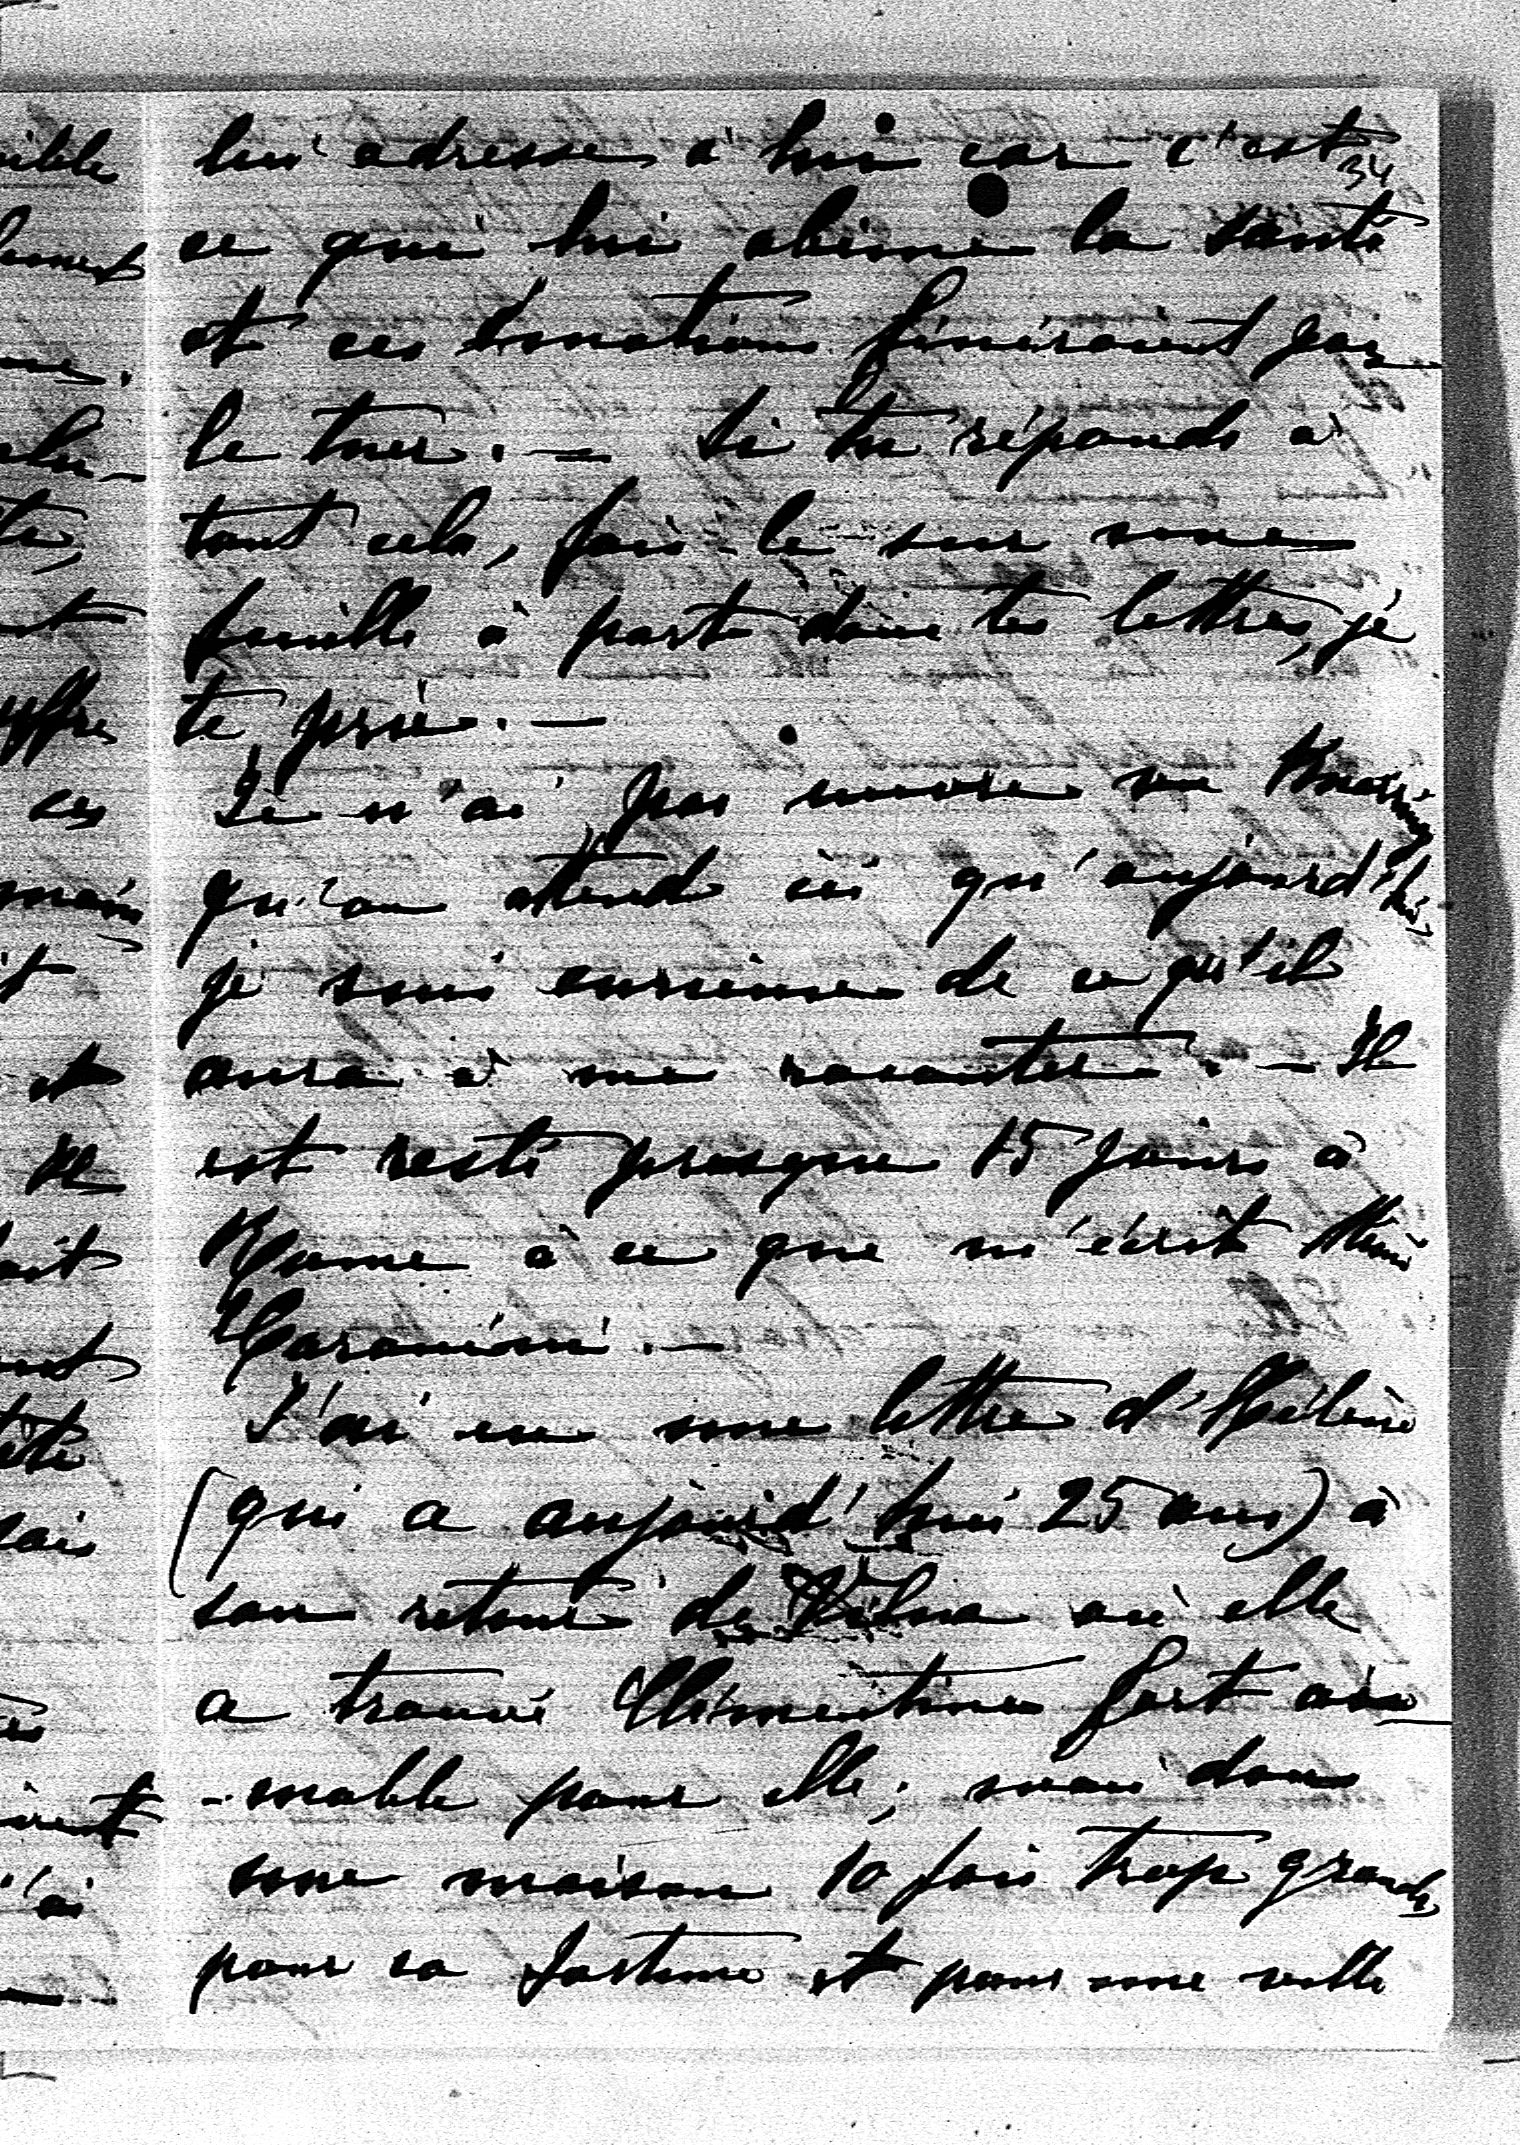 34
lui adresse, à lui car c'est
ce qui lui abîme la santé
et ces émotions finiraient par
le tuer. — Si tu réponds à
tout cela, fais-le sur une
feuille à part dans tes lettres, je
te prie. —
Je n'ai pas encore vu
qu'on attend ici qu'aujourd'hui,
je suis curieuse de ce qu'il
aura à me raconter. — Il
est resté presque 15 jours à
Rome à ce que m'écrit
J'ai eu une lettre d'Hélène
(qui a aujourd'hui 25 ans) à
son retour de Vilna où elle
a trouvé Clémentine fort ai-
-mable pour elle; mais dans
une maison 10 fois trop grande
pour sa fortune et pour une ville